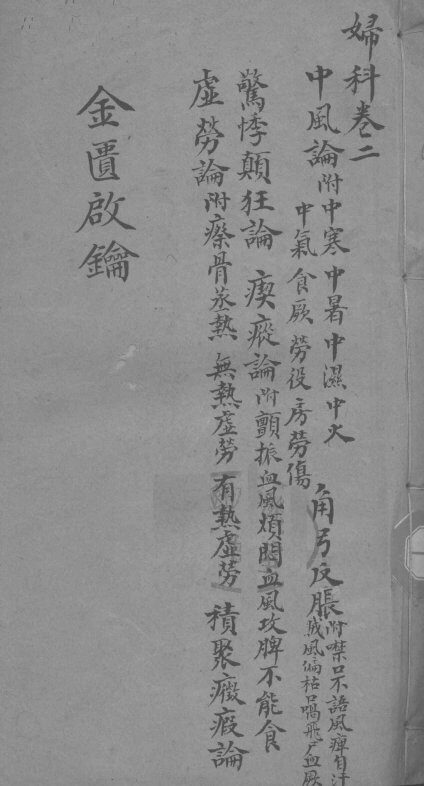 婦科卷二
中風論附中寒中暑中濕中火
中氣食厥勞役房勞傷
角弓反脹附噤口不語風痺自汗
賊風偏枯口喎飛尸血厥
驚悸顛狂論 瘈瘲論附顫振血風煩悶血風攻脾不能食
虛勞論附瘵骨蒸熱 無熱虛勞 有熱虛勞 積聚癥瘕論
金匱啟鑰